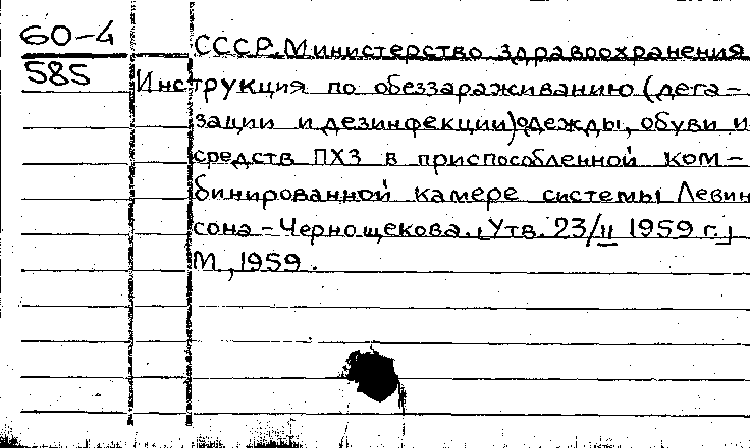 60-4
585
СССР. Министерство здравоохранения
Инструкция по обеззараживанию (дега-
зации и дезинфекции) одежды, обуви и
средств ПХЗ в приспособленной ком-
бинированной камере системы Левин
сона-Чернощекова. [Утв. 23/II 1959 г.]
М., 1959.